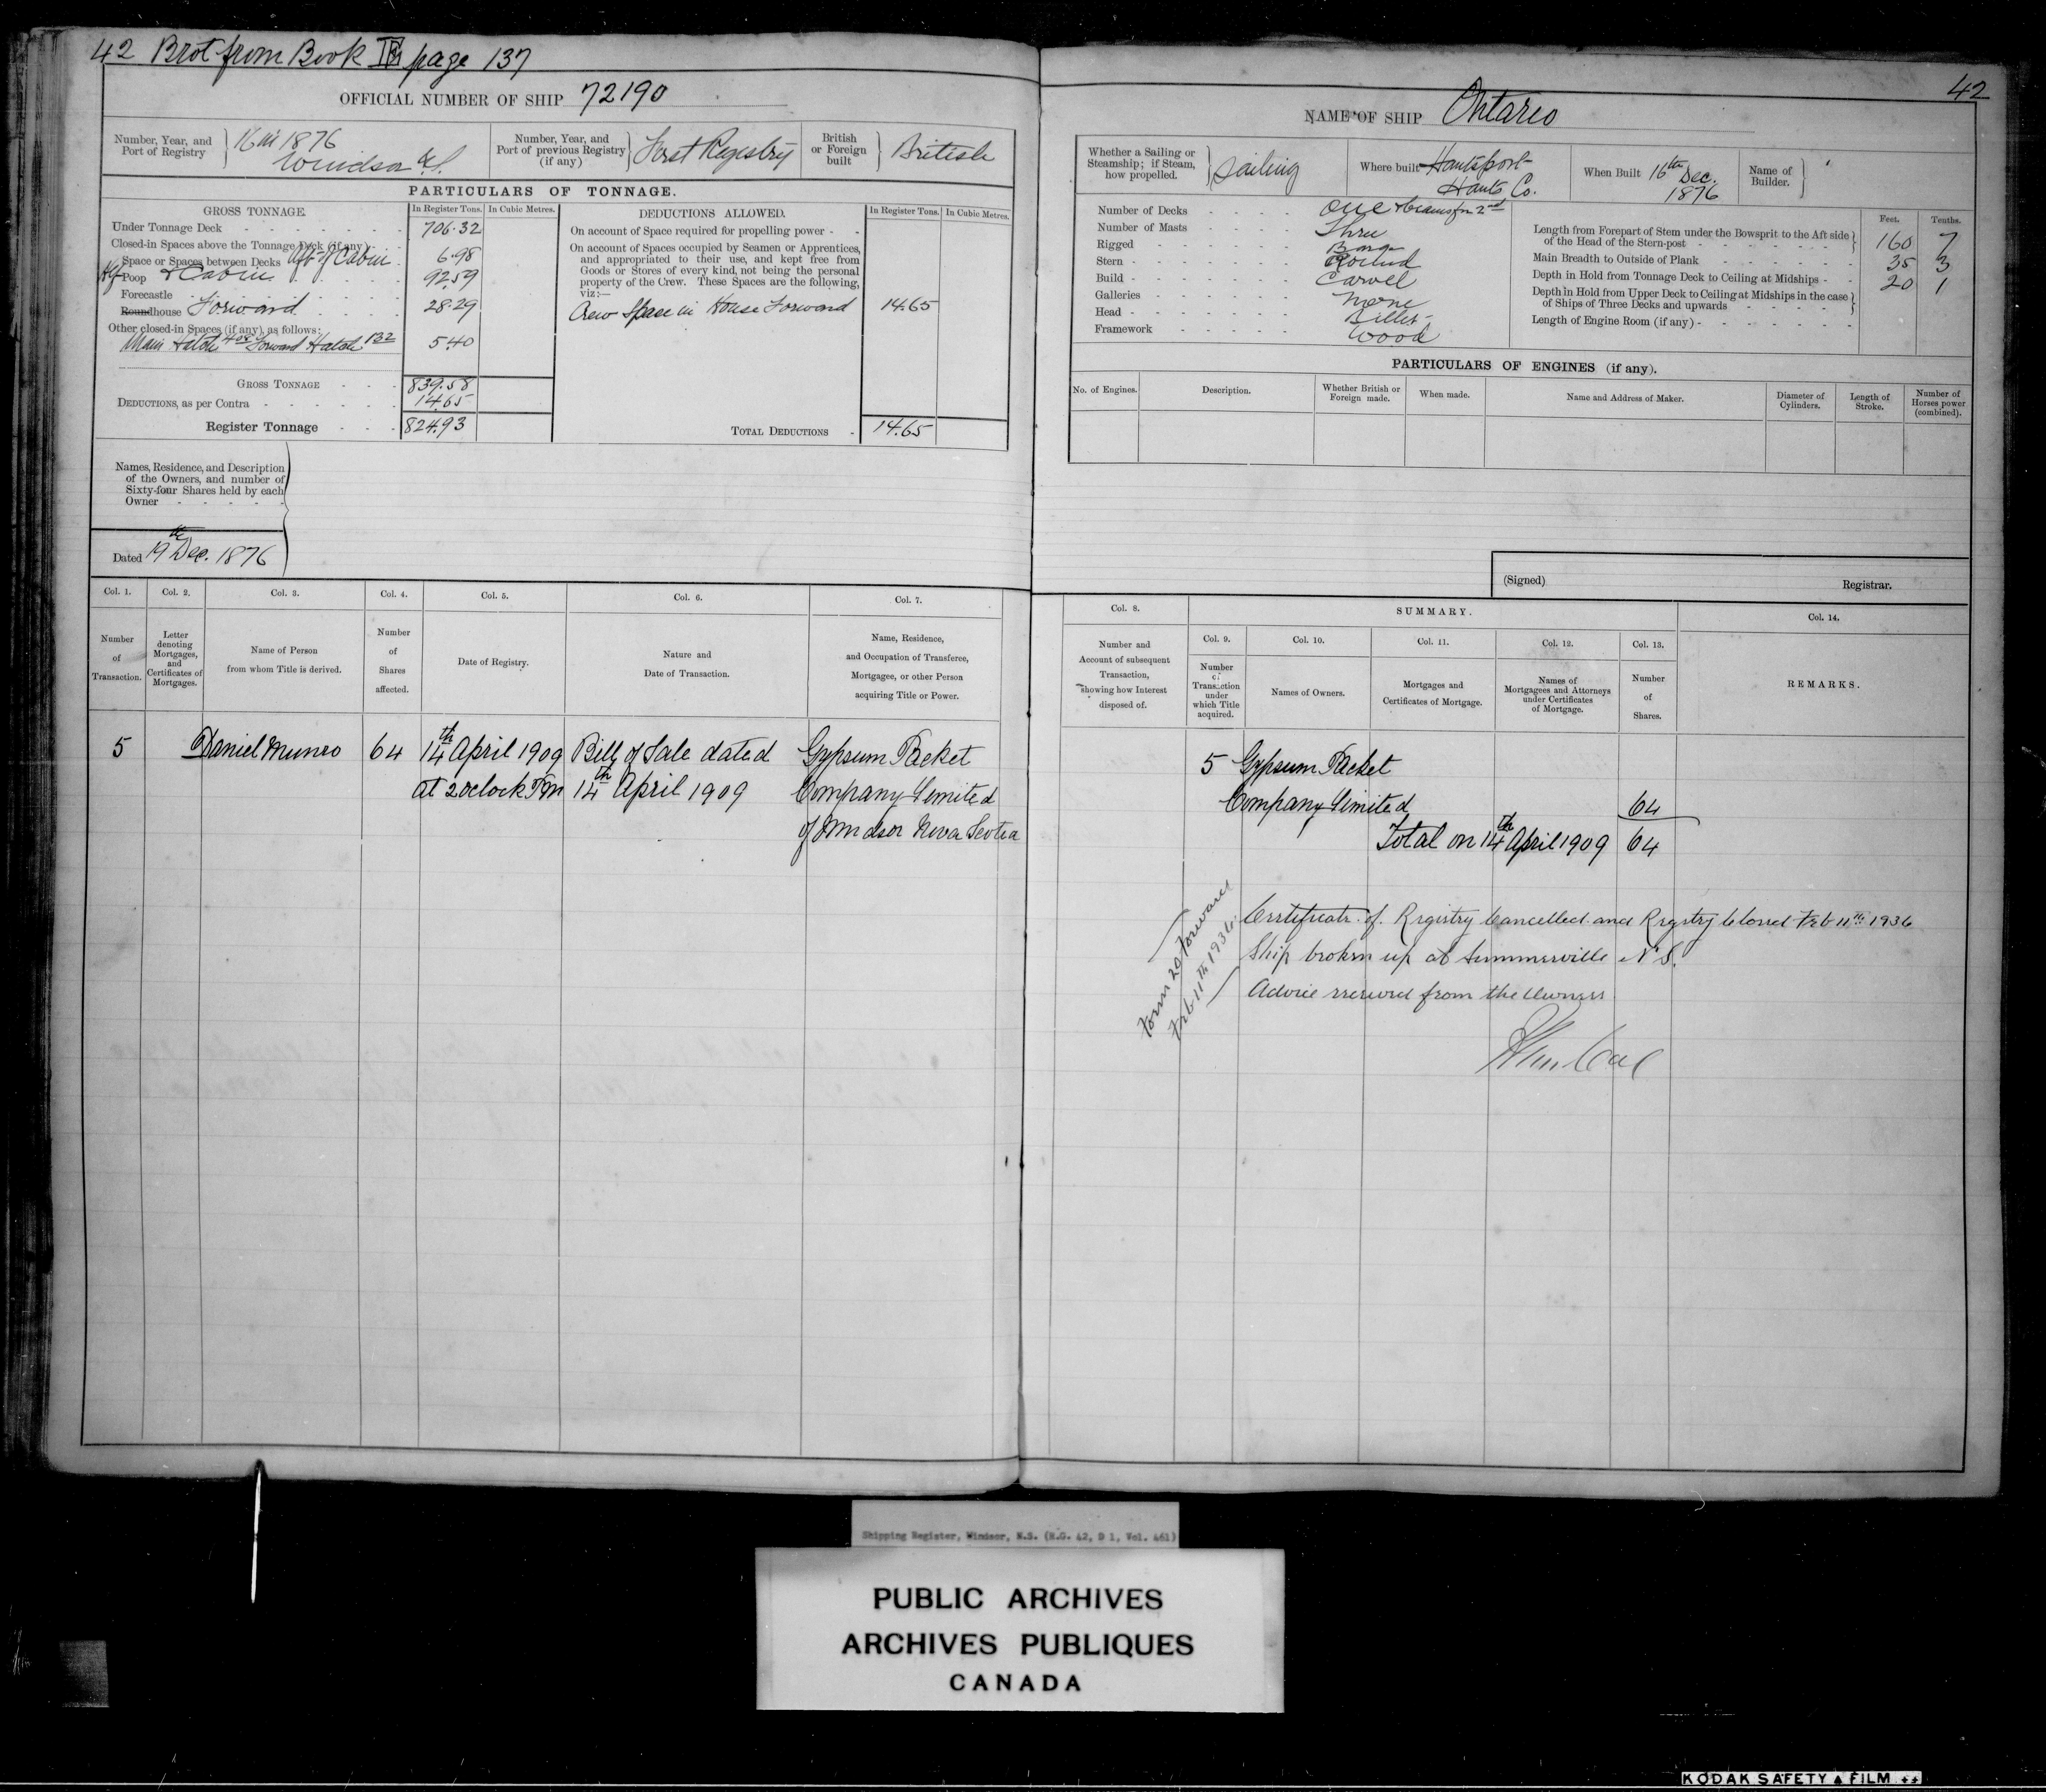 42 Brot from Book page 137
OFFICIAL NUMBER OF SHIP 72190
Number, Year, and Port of Registry
1876
Windsor N.S.
Number, Year, and Port of previous Registry (if any)
First Registry
British or Foreign built
British
PARTICULARS OF TONNAGE.
GROSS TONNAGE.
In Register Tons.
In Cubic Metres.
DEDUCTIONS ALLOWED.
In Register Tons.
In Cubic Metres.
Under Tonnage Deck 706.32
Closed-in Spaces above the Tonnage Deck (if any)
Space or Spaces between Decks Aft of Cabin 6.98
Hf Poop & Cabin 92.59
Forecastle
Roundhouse Forward 28.29
Other closed-in Spaces (if any), as follows:
Main Hatch 4.08 Forward Hatch 1.32 5.40
GROSS TONNAGE 839.58
DEDUCTIONS, as per Contra 14.65
Register Tonnage 824.93
On account of Space required for propelling power
On account of Spaces occupied by Seamen or Apprentices,
and appropriated to their use, and kept free from
Goods or Stores of every kind, not being the personal
property of the Crew. These Spaces are the following,
viz:—
Crew Space in House Forward 14.65
TOTAL DEDUCTIONS 14.65
Names, Residence, and Description
of the Owners, and number of
Sixty-four Shares held by each
Owner
Dated 19th Dec. 1876
Col. 1.
Col. 2.
Col. 3.
Col. 4.
Col. 5.
Col. 6.
Col. 7.
Number of Transaction.
Letter denoting Mortgages, and Certificates of Mortgages.
Name of Person from whom Title is derived.
Number of Shares affected.
Date of Registry.
Nature and Date of Transaction.
Name, Residence, and Occupation of Transferee, Mortgagee, or other Person acquiring Title or Power.
5 Daniel Munro 64 14th April 1909 Bill of Sale dated Gypsum Packet
at 2 oclock Pm 14th April 1909 Company Limited
of Windsor Nova Scotia
42
NAME OF SHIP Ontario
Whether a Sailing or Steamship; if Steam, how propelled.
Sailing
Where built Hantsport
Hants Co.
When Built 16th Dec.
1876
Name of Builder.
Number of Decks One & beams for 2nd
Number of Masts Three
Rigged
Stern Round
Build Carvel
Galleries None
Head Billet
Framework Wood
Feet. Tenths.
Length from Forepart of Stem under the Bowsprit to the Aft side
of the Head of the Stern-post 160 7
Main Breadth to Outside of Plank 35 3
Depth in Hold from Tonnage Deck to Ceiling at Midships 20 1
Depth in Hold from Upper Deck to Ceiling at Midships in the case
of Ships of Three Decks and upwards
Length of Engine Room (if any)
PARTICULARS OF ENGINES (if any).
No. of Engines.
Description.
Whether British or Foreign made.
When made.
Name and Address of Maker.
Diameter of Cylinders.
Length of Stroke.
Number of Horses power (combined).
(Signed)
Registrar.
Col. 8.
SUMMARY.
Col. 14.
Col. 9.
Col. 10.
Col. 11.
Col. 12.
Col. 13.
Number and Account of subsequent Transaction, showing how Interest disposed of.
Number of Transaction under which Title acquired.
Names of Owners.
Mortgages and Certificates of Mortgage.
Names of Mortgagees and Attorneys under Certificates of Mortgage.
Number of Shares.
REMARKS.
5 Gypsum Packet
Company Limited 64
Total on 14th April 1909 64
Form 20 Forward
Feb 11th 1936
Certificate of Registry Cancelled and Registry Closed Feb 11th 1936
Ship broken up at Summerville N.S.
Advice received from the Owners
Shipping Register, Windsor, N.S. (R.G. 42, D 1, Vol. 461)
PUBLIC ARCHIVES
ARCHIVES PUBLIQUES
CANADA
KODAK SAFETY FILM